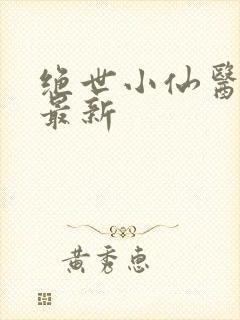 绝世小仙醫
最新
黄秀惠